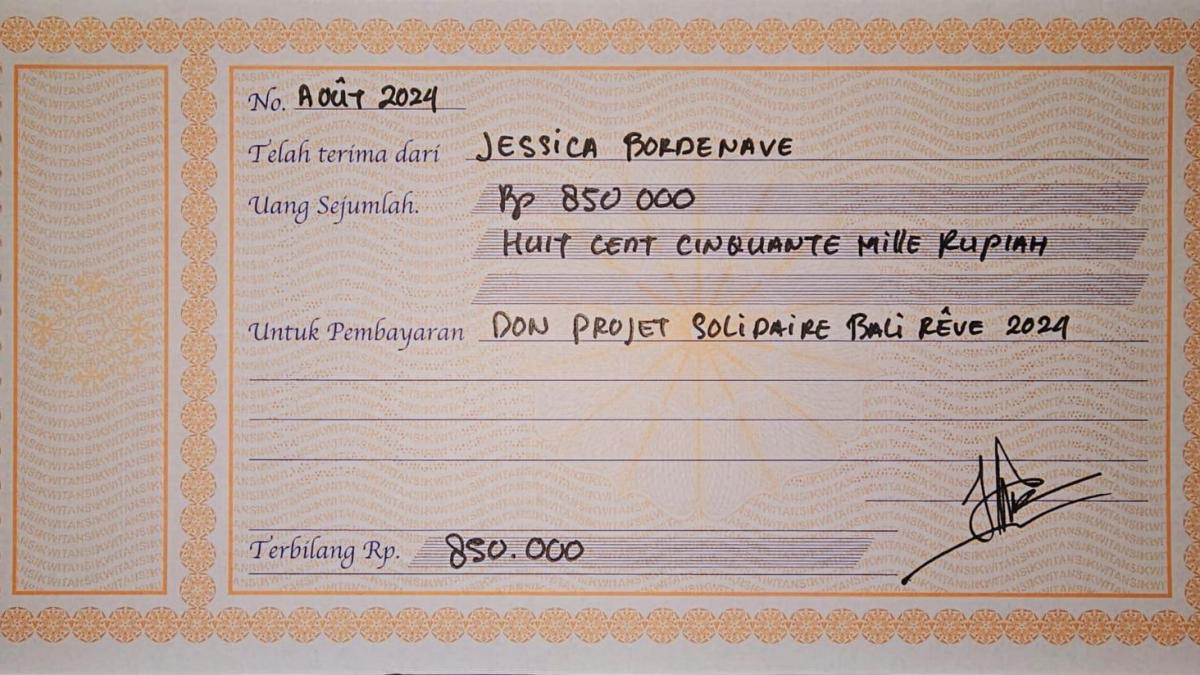 No. AOÛT 2024
Telah terima dari JESSICA BORDENAVE
Uang Sejumlah. Rp 850 000
HUIT CENT CINQUANTE MILLE RUPIAH
Untuk Pembayaran DON PROJET SOLIDAIRE BALI RÊVE 2024
Terbilang Rp. 850.000